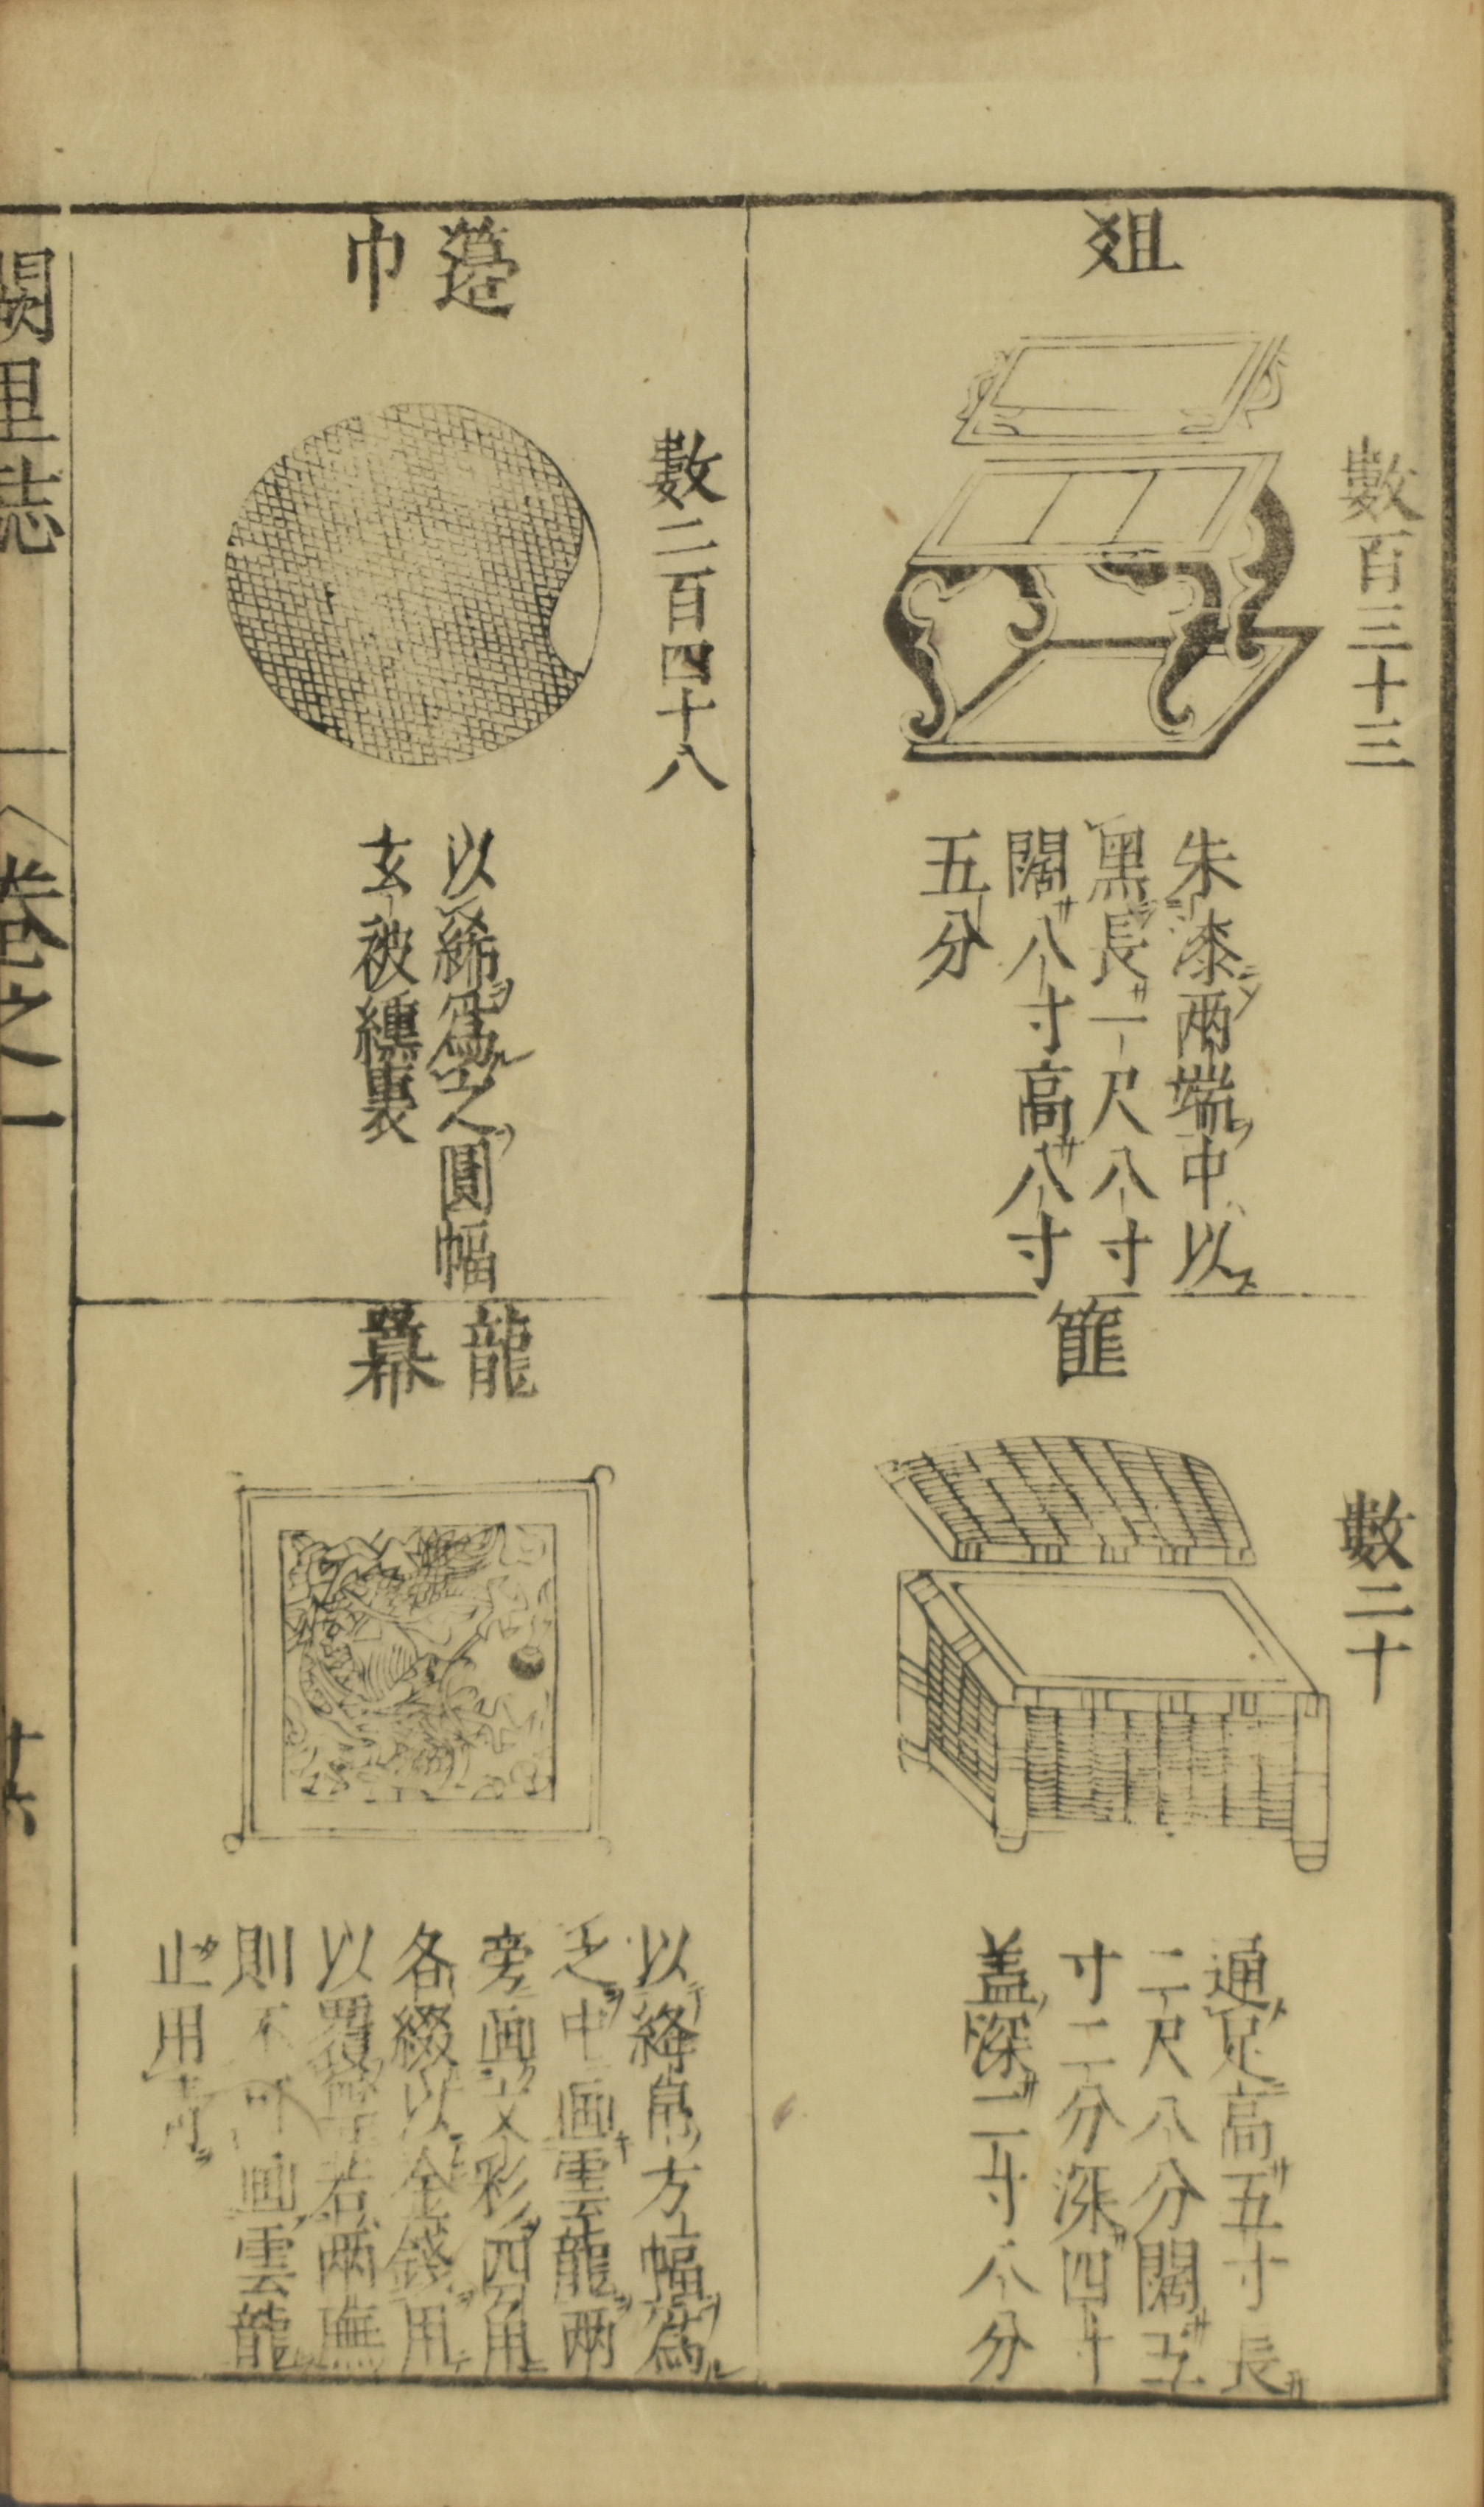 俎
數百三十三
朱漆兩端中以
黑長一尺八寸
闊八寸高八寸
五分
篚
數二十
通足高五寸長
二尺八分闊五
寸二分深四寸
盖深二寸八分
籩
巾
數二百四十八
以綌爲之圓幅
玄被纁裏
龍
冪
以絳帛方幅爲
之中画雲龍两
旁画文彩四角
各綴以金錢用
以覆 若两廡
則不可画雲龍
止用青
闕里誌
卷之一
十六